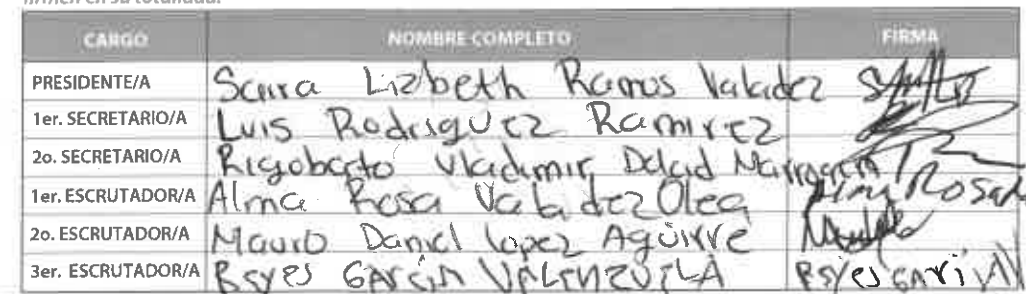 firmen en su totalidad.
CARGO NOMBRE COMPLETO FIRMA
PRESIDENTE/A Saira Lizbeth Ramos Valadez
1er. SECRETARIO/A Luis Rodriguez Ramirez
2o. SECRETARIO/A Rigoberto Vladimir
1er. ESCRUTADOR/A Alma Rosa Valadez Olea Rosa
2o. ESCRUTADOR/A Mauro Daniel Lopez Aguirre
3er. ESCRUTADOR/A Reyes GARCIA VALENZUELA Reyes GARCIA